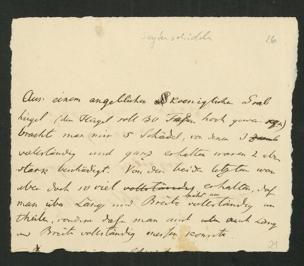 16
Aus einem angeblichen Skoenigliche Grab
hügel (der Hügel soll 30 Faden hoch gewesen
bracht man mir 5 Schädel, von denen 3
vollständig und ganz erhalten waren 2 aber
stark beschädigt. Von den beiden letzten war
aber doch so viel vollständig erhalten, daß
man über Länge und Breite vollständig
theilen, sondern daß man auch Läng
und Breite vollständig messen konnte